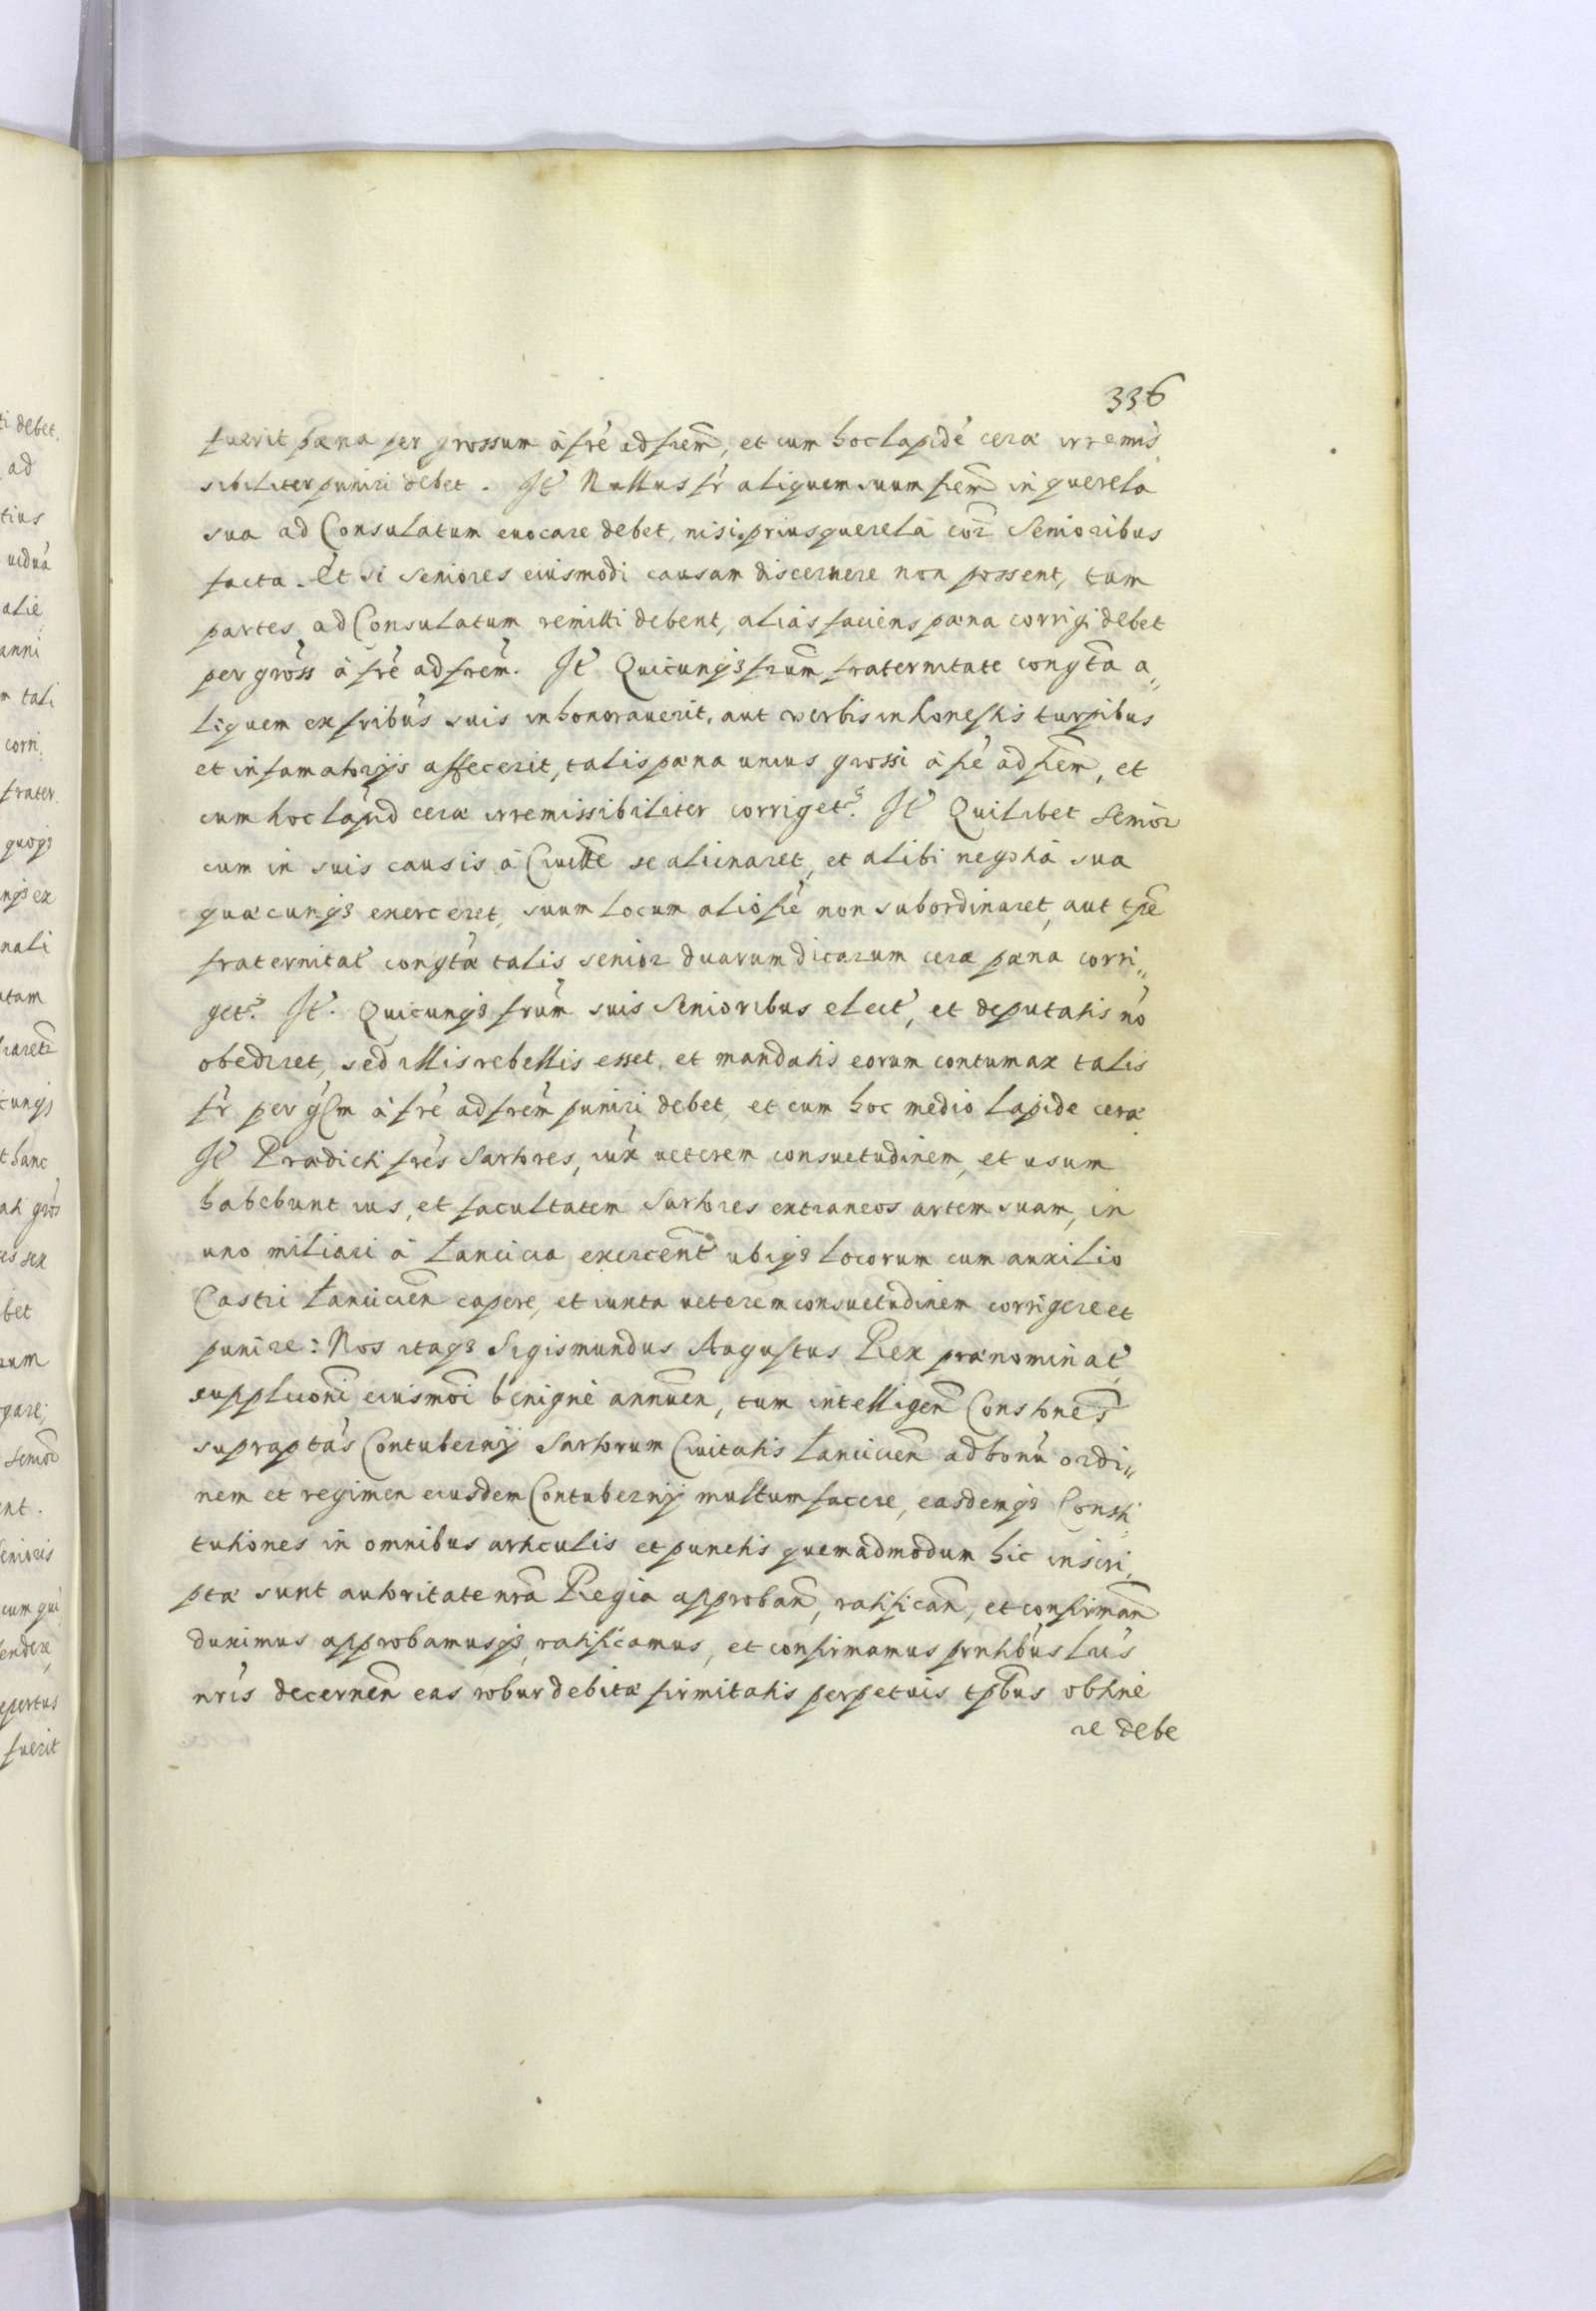 336
fuerit pæna per grossum à fre ad frem, et cum hoc lapide ceræ irremis
sibiliter puniri debet. It Nullus fr aliquem suum frem in querela
sua ad Consulatum euocare debet, nisi prius querelà cor Senioribus
facta. Et si Seniores eiusmodi causam discernere non possent, tum
partes ad Consulatum remitti debent, aliàs faciens pæna corrigi debet
per gross à fre ad frem. It Quicunq3 frum fraternitate congta a„
liquem ex fribus suis inhonorauerit, aut verbis inhonestis turpibus
et infamatorijs affecerit, talis pæna unius grossi à fre ad frem, et
cum hoc lapid ceræ irremissibiliter corriget. It Quilibet Senior
cum in suis causis à Ciuitte se alienaret, et alibi negotia sua
quæcunq3 exerceret, suum locum alio fre non subordinaret, aut tpe
fraternitat congtæ talis senior duarum dicarum ceræ pæna corri„
get. It. Quicunq3 frum suis Senioribus elect, et deputatis no
obediret, sed illis rebellis esset, et mandatis eorum contumax talis
fr per gssm à fre ad frem puniri debet, et cum hoc medio lapide ceræ
It Prædicti fres Sartores, iux ueterem consuetudinem, et usum
habebunt ius, et facultatem Sartores extraneos artem suam, in
uno miliari à Lancicia exercent ubiq3 locorum cum auxilio
Castri Lancicien capere, et iuxta ueterem consuetudinem corrigere et
punire: Nos itaq3 Sigismundus Augustus Rex prænominat
supplicioni eiusmoi benignè annuen, tum intelligen Constones
supraptas Contubernij Sartorum Ciuitatis Lancicien ad bonu ordi„
nem et regimen eiusdem Contubernij multum facere, easdemq3 Consti
tutiones in omnibus articulis et punctis quemadmodum hic inscri„
ptæ sunt autoritate nra Regia approban, ratifican, et confirman
duximus approbamusq3, ratificamus, et confirmamus prntibus lris
nris decernen eas robur debitæ firmitatis perpetuis tpbus obtine
re debe
ti debet.
ad
tius
uiduà
alie
anni
m tali
corri
frater
quoq3
nq3 ex
nali
utam
cunq3
t hanc
ah gros
es sex
bet
rum
gare;
Senior
ent.
Senioris
cum qui
endere
pertus
fuerit